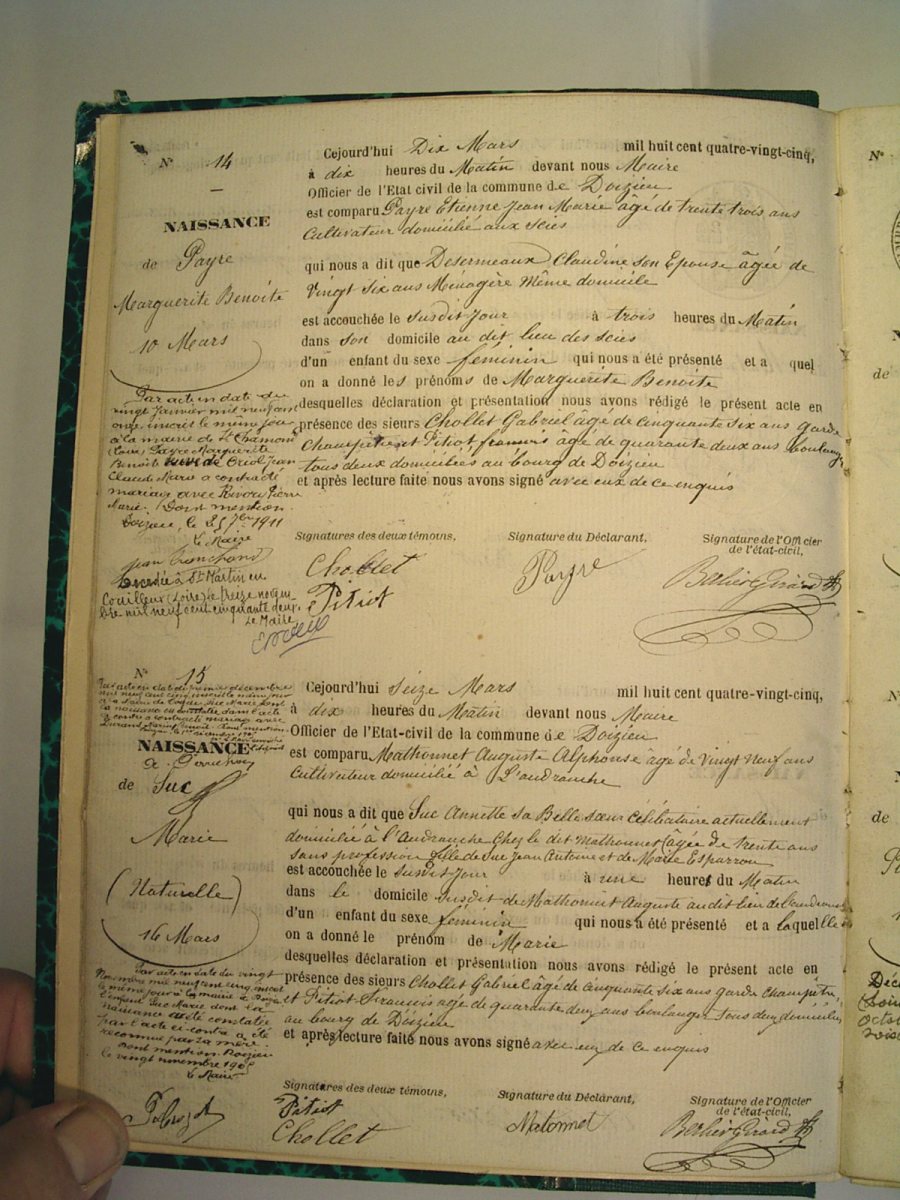 N° 14
NAISSANCE
de Payre
Marguerite Benoite
10 Mars
Par acte en date du
vingt Janvier mil neuf cent
onze inscrit le même jour
à la mairie de St Chamond
(Loire) Payre Marguerite
Benoite veuve de Oriol Jean
Claude Marie a contracté
mariage avec Rivory Pierre
Marie. Dont mention.
Doizieu, le 25 7bre 1911
Le Maire
Décédée à St Martin en
Coailleux (Loire) le treize novem-
bre mil neuf cent cinquante deux.
Le Maire
Cejourd'hui Dix Mars mil huit cent quatre-vingt-cinq,
à dix heures du Matin devant nous Maire
Officier de l'Etat civil de la commune de Doizieu
est comparu Payre Etienne Jean Marie âgé de trente trois ans
Cultivateur domicilié aux Scies
qui nous a dit que Desermeaux Claudine son Epouse âgée de
Vingt Six ans Ménagère Même domicile
est accouchée le susdit jour à trois heures du Matin
dans son domicile au dit lieu des scies
d'un enfant du sexe féminin qui nous a été présenté et a quel
on a donné les prénoms de Marguerite Benoite
desquelles déclaration et présentation nous avons rédigé le présent acte en
présence des sieurs Chollet Gabriel âgé de cinquante six ans garde
Champêtre et Pitiot francois âgé de quarante deux ans boulanger
tous deux domiciliés au bourg de Doizieu
et après lecture faite nous avons signé avec eux de ce enquis
Signatures des deux témoins, Signature du Déclarant, Signature de l'Officier
de l'état-civil,
Chollet Payre
Pitiot
N° 15
Par acte en date du premier décembre
mil neuf cent cinq inscrit le même jour
NAISSANCE
de Suc
Marie
(Naturelle)
16 Mars
Par acte en date du vingt
Novembre mil neuf cent cinq inscrit
le même jour à la mairie de
l'enfant Suc Marie dont la
naissance est constatée
par l'acte ci-contre a été
reconnue par sa mère.
Dont mention. Doizieu
le vingt novembre 1905
Le Maire
Cejourd'hui Seize Mars mil huit cent quatre-vingt-cinq,
à dix heures du Matin devant nous Maire
Officier de l'Etat-civil de la commune de Doizieu
est comparu Mathonnet Auguste Alphonse âgé de vingt Neuf ans
Cultivateur domicilié à L'audranche
qui nous a dit que Suc Annette sa Belle sœur Célibataire actuellement
domicilié à l'Audranche Chez le dit Mathonnet âgée de trente ans
sans profession fille de Suc Jean Antoine et de Marie Esparron
est accouchée le susdit jour à une heures du Matin
dans le domicile susdit de Mathonnet Auguste au dit lieu de
d'un enfant du sexe féminin qui nous a été présenté et a laquelle
on a donné le prénom de Marie
desquelles déclaration et présentation nous avons rédigé le présent acte en
présence des sieurs Chollet Gabriel âgé de cinquante six ans garde Champêtre,
et Pitiot Francois age de quarante deux ans boulanger tous deux domiciliés
au bourg de Doizieu
et après lecture faite nous avons signé avec eux de ce enquis
Signatures des deux témoins, Signature du Déclarant, Signature de l'Officier
de l'état-civil,
Pitiot Matonnet
Chollet
N°
de
de